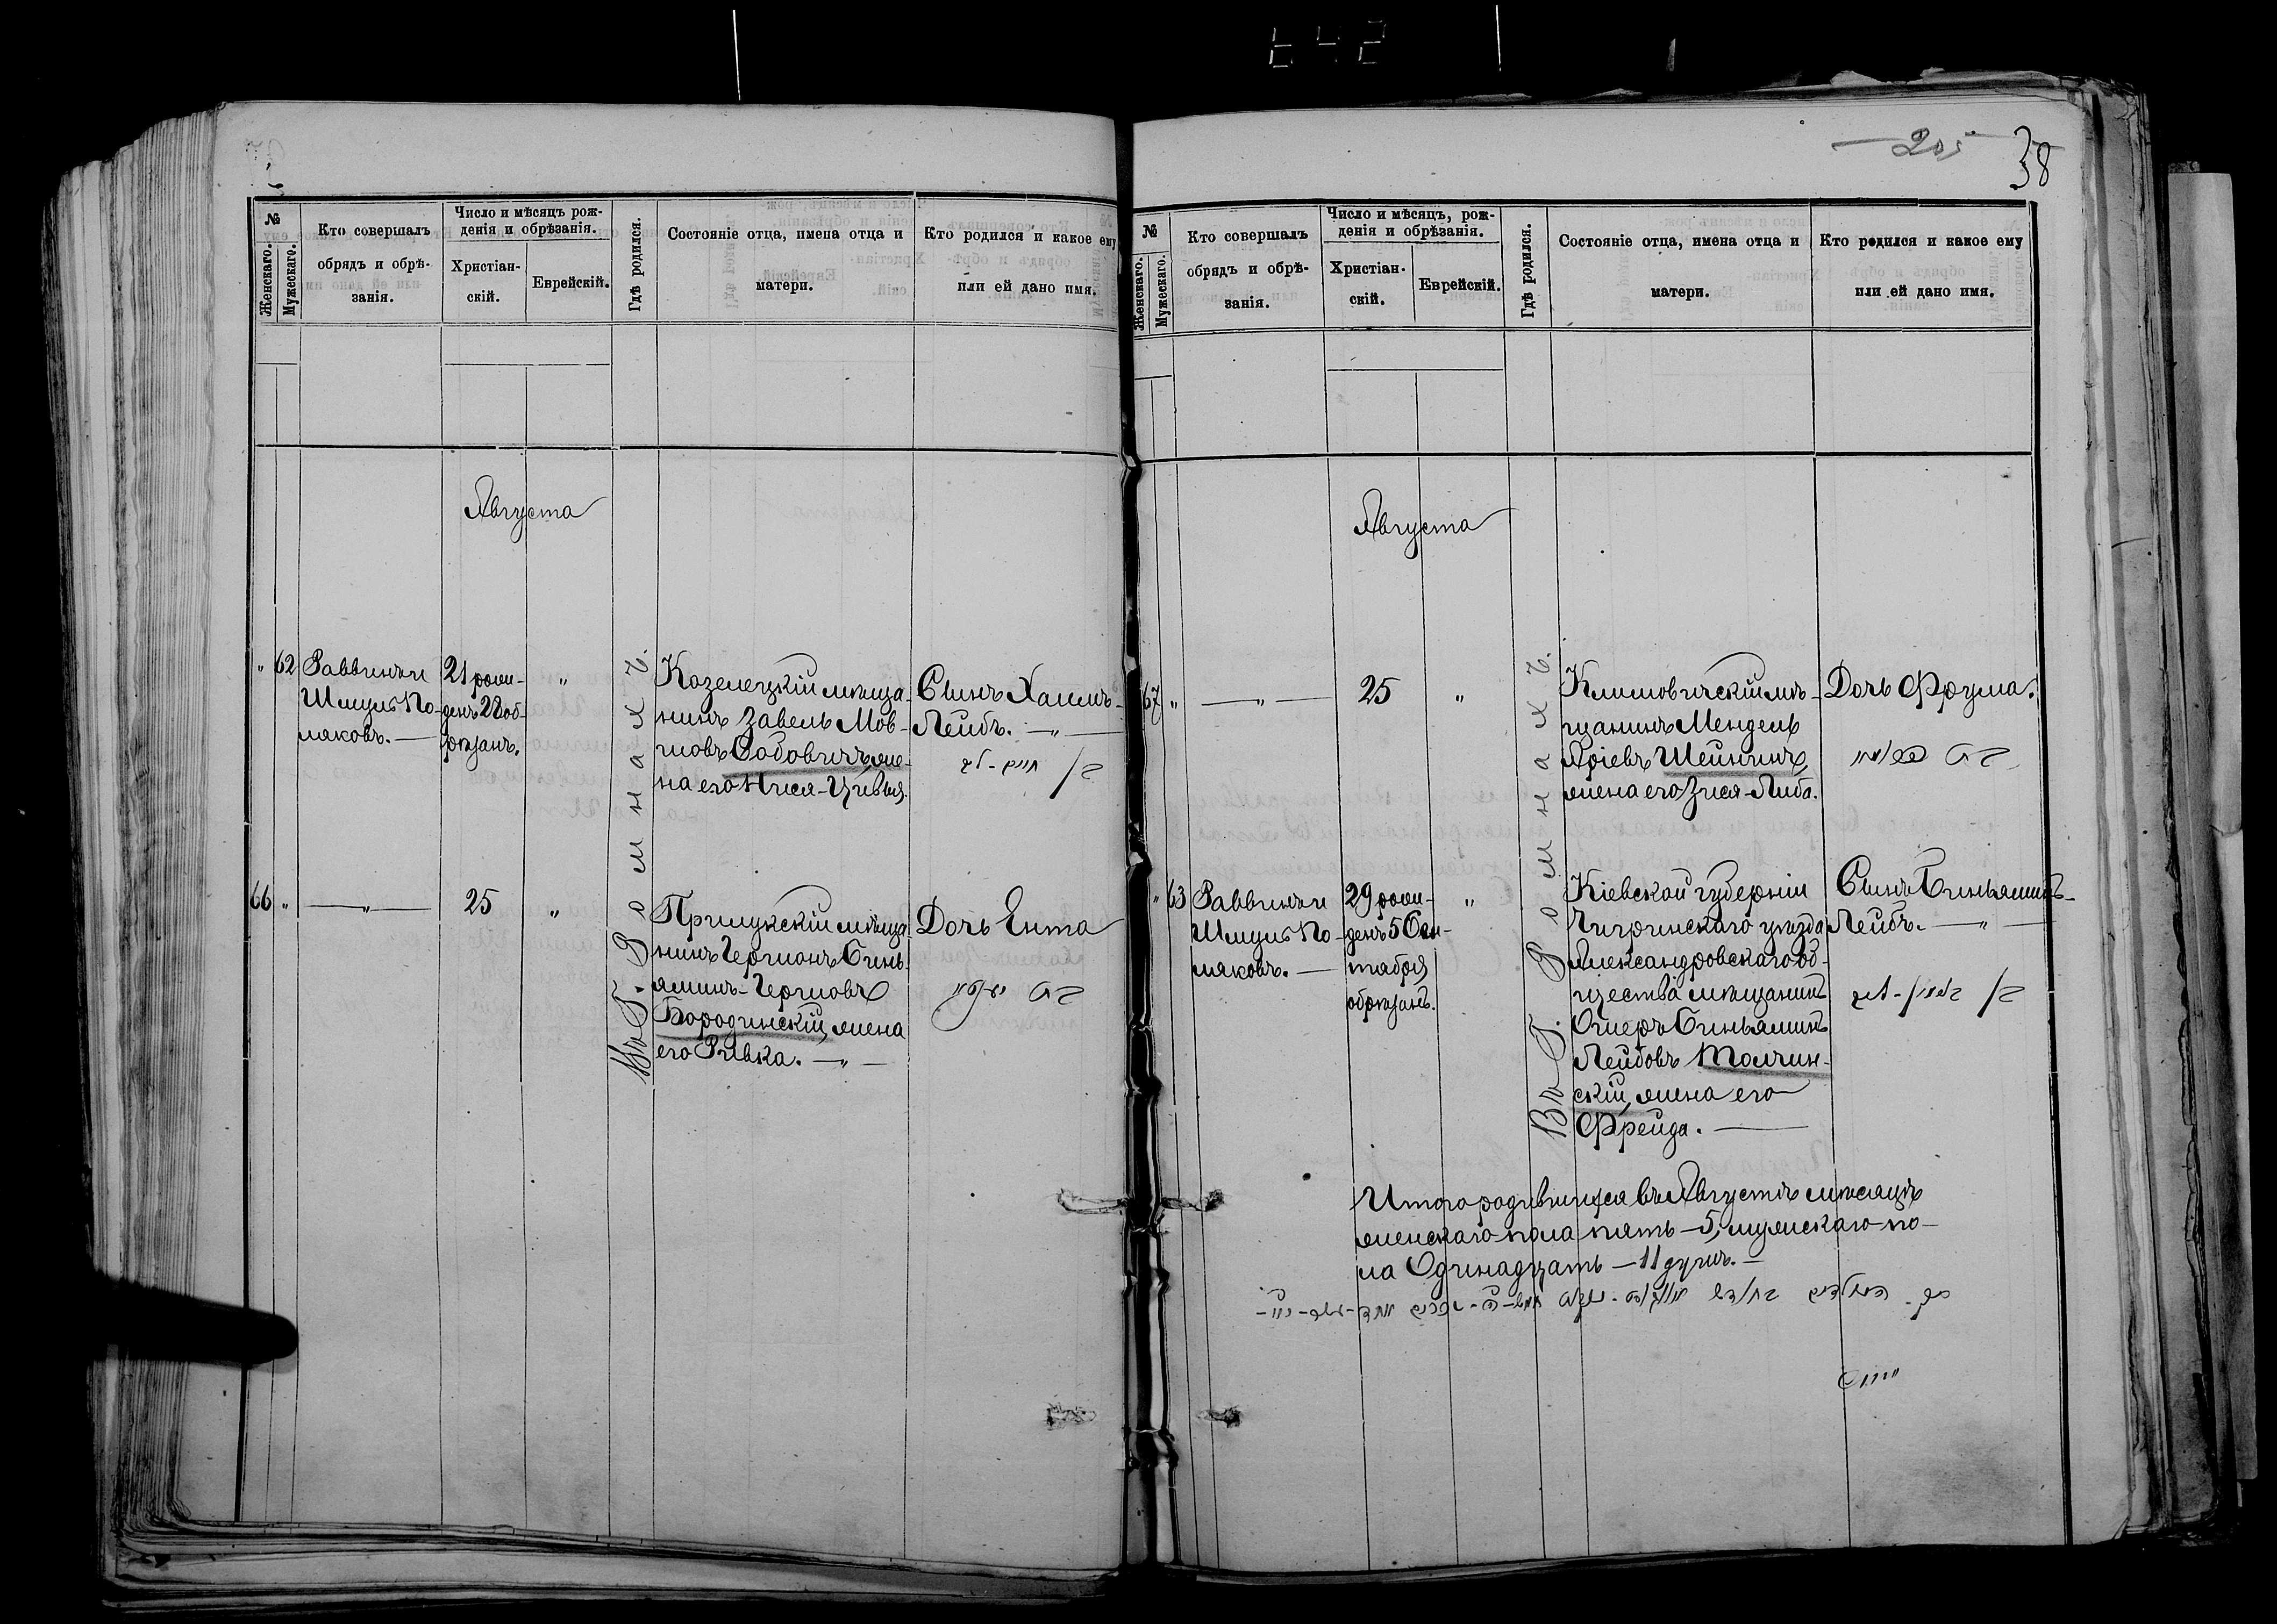 205
38
№
Женскаго.
Мужескаго.
Кто совершалъ
обрядъ и обрѣ-
занія.
Число и мѣсяцъ рож-
денія и обрѣзанія.
Христіан-
скій.
Еврейскій.
Гдѣ родился.
Состояніе отца, имена отца и
матери.
Кто родился и какое ему
или ей дано имя.
Августа
Въ г. Ромнахъ.
" 62
Раввинъ и
Шмуль По-
ляковъ. —
21 рож-
денъ 28 об-
рѣзанъ.
"
Козелецкій мѣща-
нинъ Завель Мов-
шовъ Собовичъ, же-
на его Нися-Цивья.
Сынъ Хаимъ-
Лейбъ. — " —
בן חיים-ליב
66 "
— " —
25
"
Прилукскій мѣща-
нинъ Гершонъ Бинь-
яминъ-Гершовъ
Бородинскій, жена
его Ривка. — " —
Дочь Ента
בת יענטא
№
Женскаго.
Мужескаго.
Кто совершалъ
обрядъ и обрѣ-
занія.
Число и мѣсяцъ, рож-
денія и обрѣзанія.
Христіан-
скій.
Еврейскій.
Гдѣ родился.
Состояніе отца, имена отца и
матери.
Кто родился и какое ему
или ей дано имя.
Августа
Въ г. Ромнахъ.
67 "
— " —
25
"
Климовичскій мѣ-
щанинъ Мендель
Аріевъ Шейнинъ,
жена его Зися-Либа.
Дочь Фрума.
בת פרומא
" 63
Раввинъ и
Шмуль По-
ляковъ. —
29 рож-
денъ 5 Сен-
тября
обрѣзанъ.
"
Кіевской губерніи
Чигринскаго уѣзда
Александровскаго об-
щества мѣщанинъ
Ошеръ Биньяминъ
Лейбовъ Толчин-
скій, жена его
Фрейда. —
Сынъ Биньяминъ-
Лейбъ. — " —
בן בנימין-ליב
Итого родившихся въ Августѣ мѣсяцѣ
женскаго пола пять — 5, мужескаго по-
ла Одинадцать — 11 душъ. —